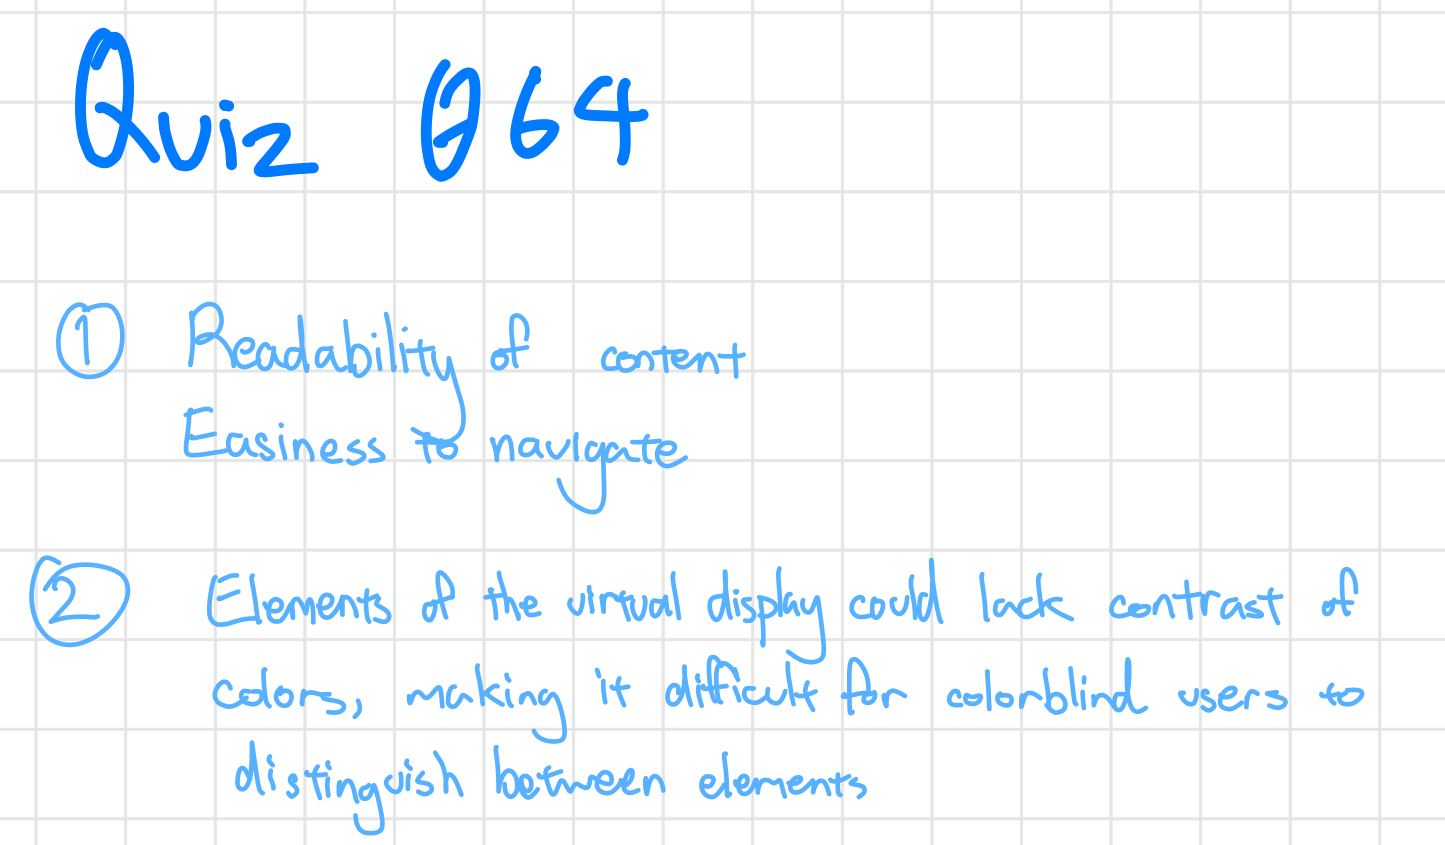 Quiz 064
1 Readability of content
Easiness to navigate
2 Elements of the virtual display could lack contrast of
colors, making it difficult for colorblind users to
distinguish between elements